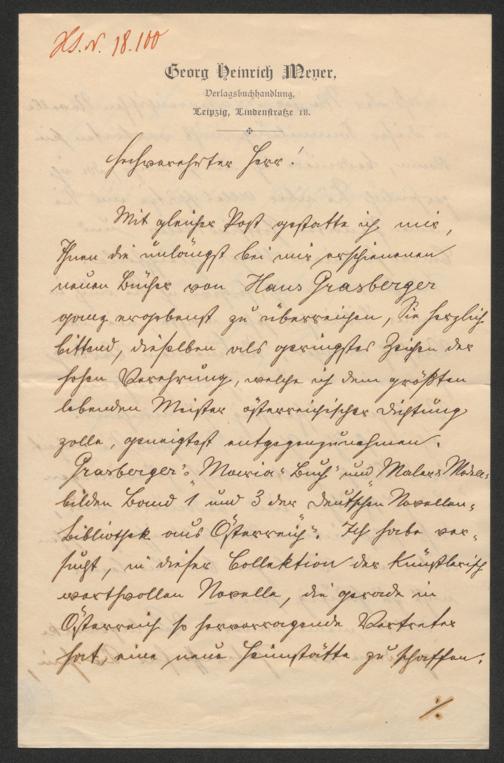 H.I.N. 18.100
Georg Heinrich Meyer,
Verlagsbuchhandlung.
Leipzig, Lindenstraße 18.
Hochverehrter Herr!
Mit gleicher Post gestatte ich mir,
Ihnen die unlängst bei mir erschienenen
neuen Bücher von Hans Grasberger
ganz ergebenst zu überreichen, Sie herzlich
bittend, dieselben als geringstes Zeichen der
hohen Verehrung, welche ich dem größten
lebenden Meister österreichischer Dichtung
zolle, geneigtest entgegenzunehmen.
Grasberger's „Maria-Buch" und „Malers Modell"
bilden Band 1 und 3 der „Deutschen Novellen-
Bibliothek aus Österreich". Ich habe ver-
sucht, in dieser Collektion der künstlerisch
werthvollen Novelle, die gerade in
Österreich so hervorragende Vertreter
hat, eine neue Heimstätte zu schaffen.
%